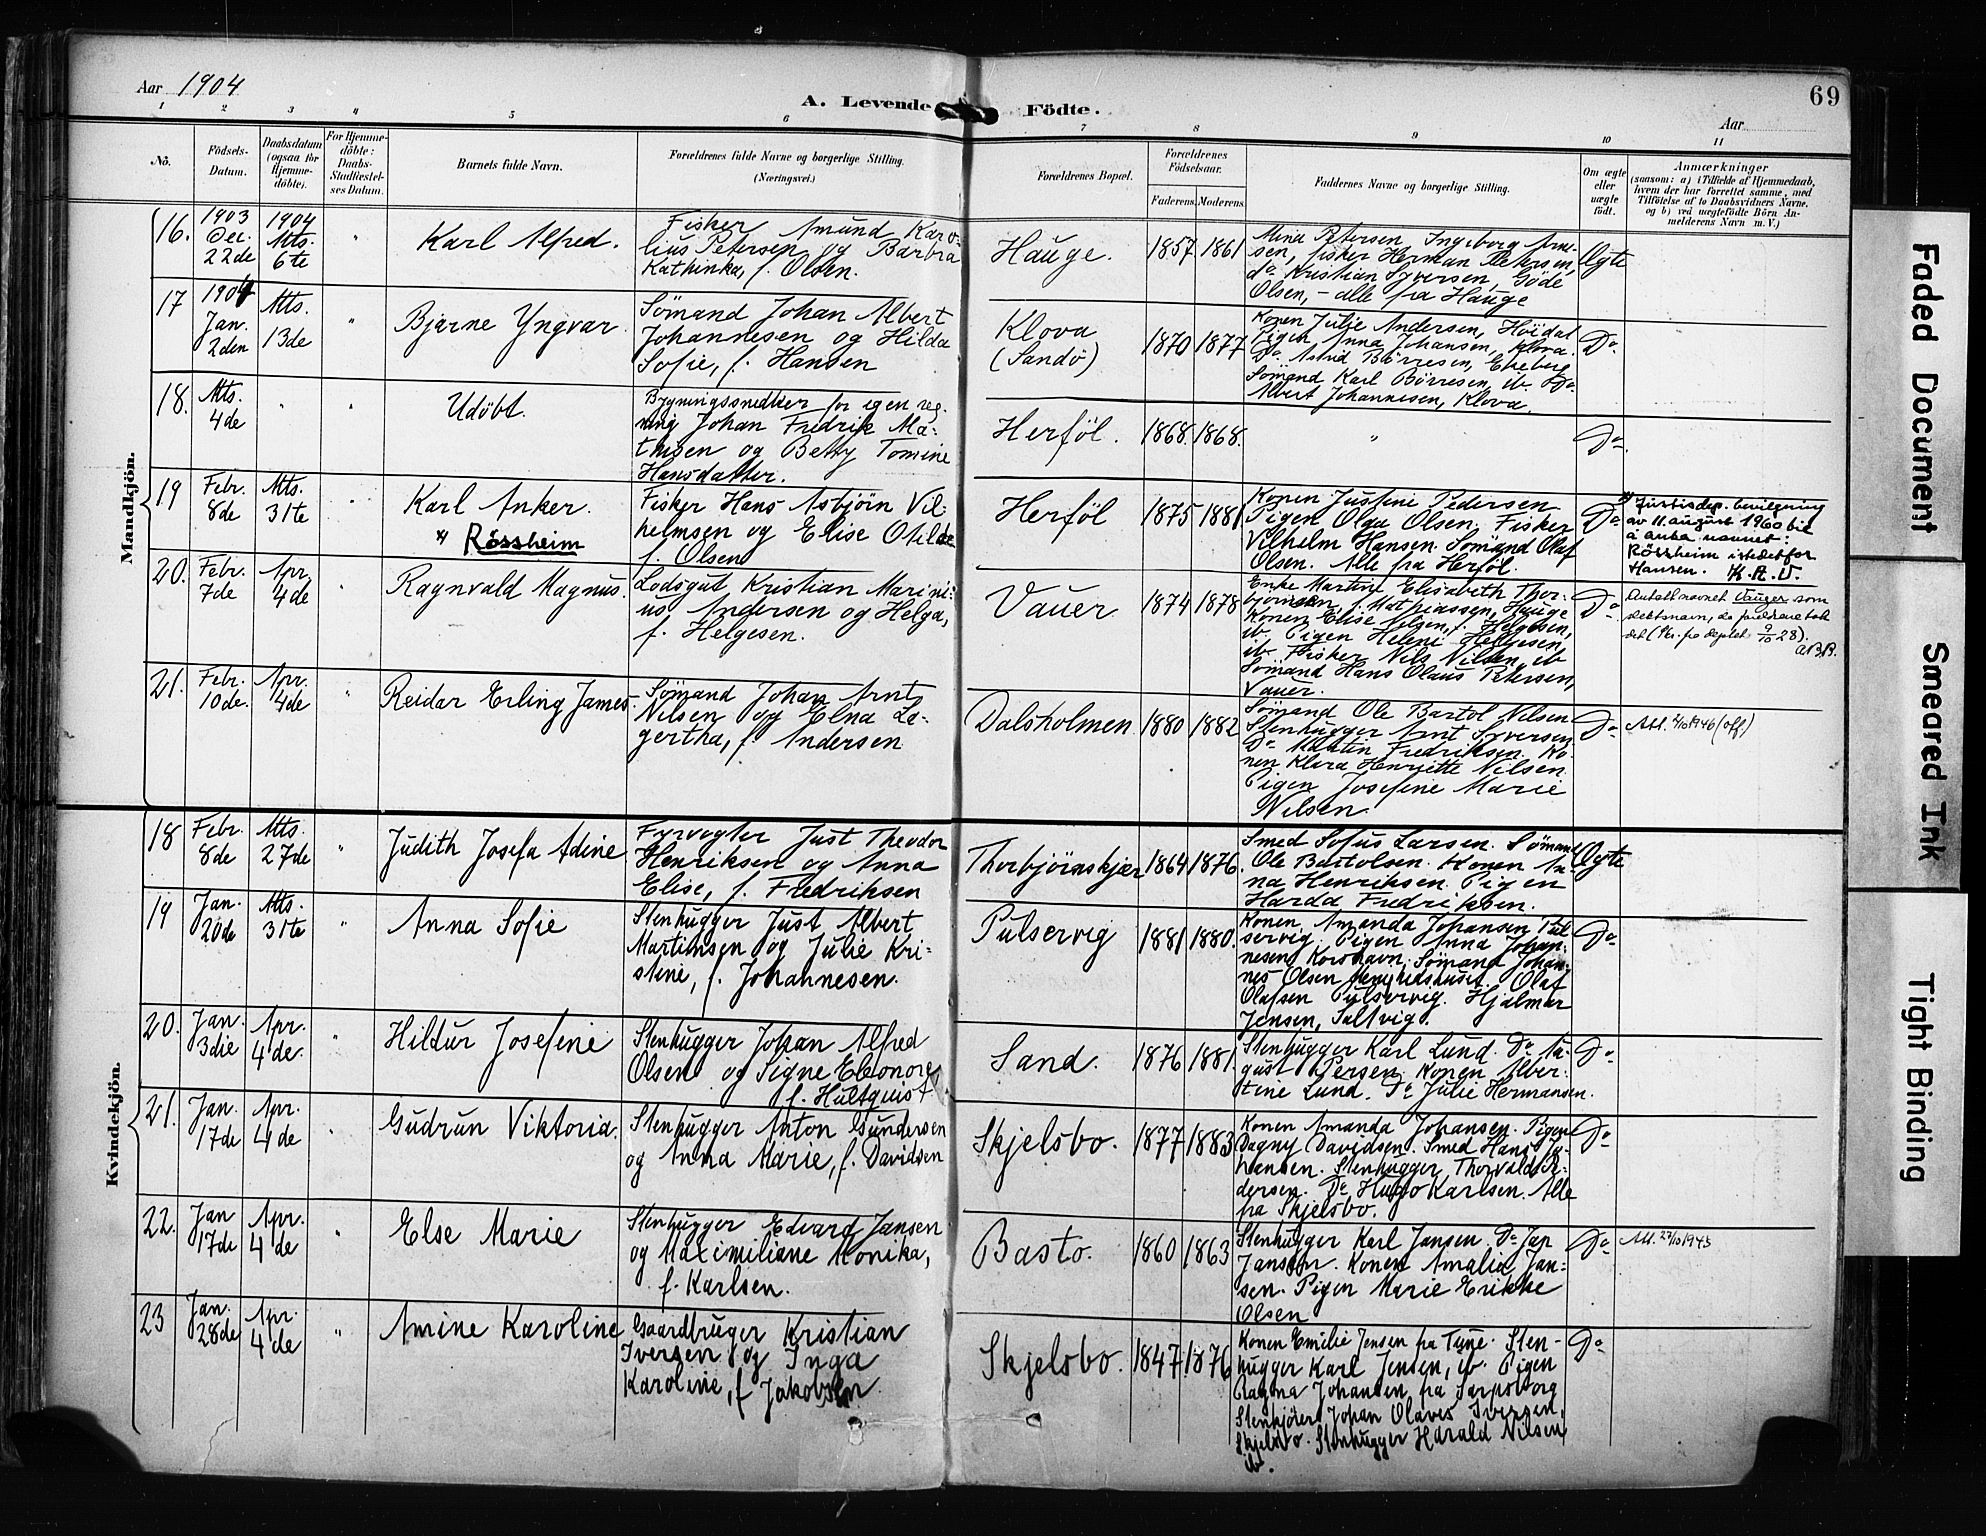 Aar 1904
A. Levende Födte.
69
Aar
1 2 3 4 5 6 7 8 9 10 11
No.
Födsels-
Datum.
Daabsdatum
(ogsaa for
Hjemme-
döbte).
For Hjemme-
döbte:
Daabs-
Stadfæstel-
ses Datum.
Barnets fulde Navn.
Forældrenes fulde Navne og borgerlige Stilling.
(Næringsvei.)
Forældrenes Bopæl.
Forældrenes
Födselsaar.
Faderens. Moderens.
Faddernes Navne og borgerlige Stilling.
Om ægte
eller
uægte
födt.
Anmærkninger
(saasom: a) i Tilfælde af Hjemmedaab,
hvem der har forrettet samme, med
Tilföielse af to Daabsvidners Navne.
og b) ved uægtefödte Börn An-
melderens Navn m. V.)
Mandkjön.
16.
1903
Dec.
22de
1904
Mts.
6te
"
Karl Alfred.
Fisker Amund Karo-
lius Petersen og Barbra
Kathinka, f. Olsen.
Hauge.
1857 1861
Mina Petersen, Ingeborg Arn-
sen, fisker Herman Petersen,
do Kristian Syversen, Göde
Olsen, - alle fra Hauge
Ægte
17
1904
Jan.
2den
Mts.
13de
"
Bjarne Yngvar.
Sömand Johan Albert
Johannesen og Hilda
Sofie, f. Hansen
Klova
(Sandö)
1870 1877
Konen Julie Andersen, Höidal
Pigen Anna Johansen, Klova.
Do Astrid Börresen, Ekeberg
Sömand Karl Börresen, ib. Do
Albert Johannesen, Klova.
Do
18.
Mts.
4de
" "
Udöbt.
Bygningssnedker for egen reg-
ning Johan Fredrik Ma-
thisen og Betsy Tomine
Hansdatter.
Herföl.
1868. 1868.
"
Do
19
Febr.
8de
Mts.
31te
"
Karl Anker.
x) Rössheim
Fisker Hans Asbjörn Vil-
helmsen og Elise Otilde
f. Olsen
Herföl
1875 1881
Konen Justine Pedersen
Pigen Olga Olsen. Fisker
Vilhelm Hansen. Sömand Olaf
Olsen. Alle fra Herföl.
Do
x) Justisdep. bevilgning
av 11. august 1960 til
å anta navnet:
Rössheim istedetfor
Hansen. K.A.V.
20.
Febr.
7de
Apr.
4de
"
Ragnvald Magnus.
Lodsgut Kristian Marini-
us Andersen og Helga,
f. Helgesen.
Vauer
1874 1878
Enke Martine Elisabeth Thor-
björnsen, f. Mathiassen, Hauge
Konen Elise Nilsen, f. Helgesen,
ib. Pigen Helene Helgesen,
ib. Fisker Nils Nilsen, ib
Sömand Hans Olaus Petersen,
Vauer.
Do
Antatt navnet Vauger som
slektsnavn, da foreldrene tok
det (Skr. fra deptet 9/10 28).
21.
Febr.
10de.
Apr.
4de
"
Reidar Erling James.
Sömand Johan Arnt
Nilsen og Elna La-
gertha, f. Andersen
Dalsholmen
1880 1882
Sömand Ole Bartol Nilsen
Stenhugger Arnt Syversen
Do Martin Fredriksen. Ko-
nen Klara Henriette Nilsen
Pigen Josefine Marie
Nilsen
Do
Kvindekjön.
18
Febr.
8de
Mts.
27de
"
Judith Josefa Adine
Fyrvogter Just Theodor
Henriksen og Anna
Elise, f. Fredriksen
Thorbjörnskjær
1864 1876.
Smed Sofus Larsen. Sömand
Ole Bartolsen. Konen An-
na Henriksen. Pigen
Harda Fredriksen.
Ægte
19
Jan.
20de
Mts.
31te
"
Anna Sofie
Stenhugger Just Albert
Martinsen og Julie Kri-
stine, f. Johannesen.
Pulservig
1881 1880.
Konen Amanda Johansen Pul-
servig. Pigen Anna Johan-
nesen Korshavn. Sömand Johan-
nes Olsen Olaf
Olafsen Pulservig. Hjalmar
Jensen, Saltvig.
Do
20.
Jan.
3die
Apr.
4de.
"
Hildur Josefine
Stenhugger Johan Alfred
Olsen og Signe Eleonore
f. Hultquist
Sand.
1876 1881.
Stenhugger Karl Lund. Do Au-
gust Persen. Konen Alber-
tine Lund. Do Julie Hermansen.
Do
21.
Jan.
17de
Apr.
4de
"
Gudrun Viktoria.
Stenhugger Anton Gundersen
og Anna Marie, f. Davidsen
Skjelsbo.
1877 1883
Konen Amanda Johansen. Pigen
Dagny Davidsen. Smed Hans Jo-
hansen. Stenhugger Thorvald Pe-
dersen. Do Hugo Karlsen. Alle
fra Skjelsbo.
Do
22.
Jan
17de
Apr.
4de
"
Else Marie
Stenhugger Edvard Jansen
og Maximiliane Monika,
f. Karlsen.
Basto.
1860 1863
Stenhugger Karl Jansen. Do Jap
Janssen. Konen Amalia Jan-
sen. Pigen Marie Erikke
Olsen
Do
Att. 27/10 1943
23
Jan.
28de
Apr.
4de
"
Amine Karoline
Gaardbruger Kristian
Iversen og Inga
Karoline, f. Jakobsen.
Skjelsbo.
1847 1876
Konen Emilie Jensen fra Tune. Sten-
hugger Karl Jensen, ib. Pigen
Ragna Johansen, fra Sarpsborg
Stenkjörer Johan Olaves Iversen,
Skjelsbo. Stenhugger Harald Nilsen,
ib.
Do
Faded Document
Smeared Ink
Tight Binding